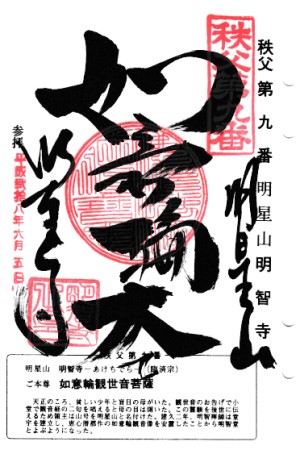 秩父第九番
秩父第九番 明星山 明智寺
明星山
如意輪大
明智寺
参拝 平成弐拾八年六月五日
秩父第九番
明星山 明智寺―あけちでら―(臨済宗)
ご本尊 如意輪観世音菩薩
天正のころ、貧しい少年と盲目の母がいた。観世音のお告げで小
堂で観音経の二句を唱えると母の目は開いた。この霊験を後世に伝
えるため領主は山号を明星山と名付けた。建久二年、明智禅師が堂
宇を建立し、恵心僧都作の如意輪観音像を安置したことから明智堂
とよぶようになった。